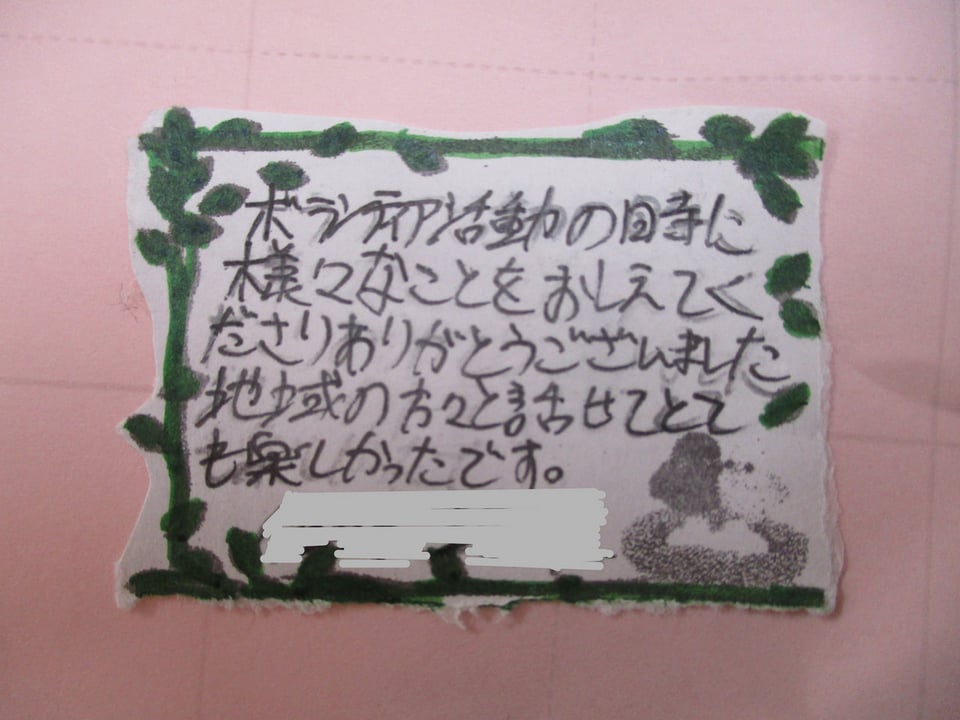 ボランティア活動の時に
様々なことをおしえてく
ださりありがとうございました
地域の方々と話せてとて
も楽しかったです。